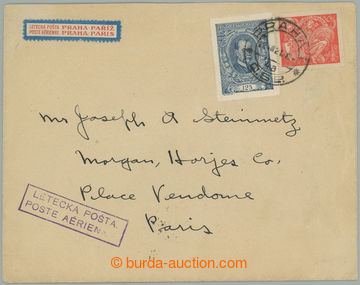 LETECKÁ POŠTA PRAHA-PAŘÍŽ
POSTE AÉRIENNE PRAHA-PARIS
125
PRAHA
Mr Joseph A Steinmetz
Morgan, Harjes Co.
Place Vendome
Paris
LETECKÁ POŠTA
POSTE AÉRIEN
© burda-auction.com